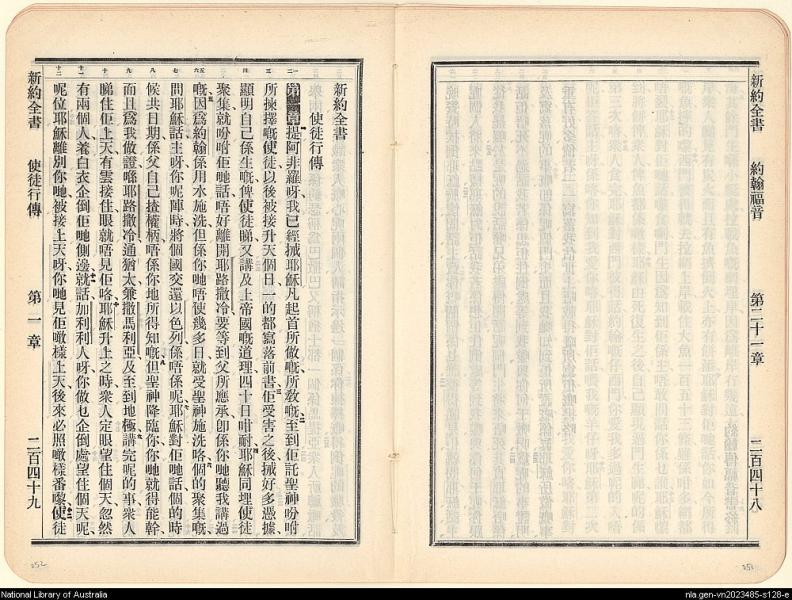 新約全書 約翰福音 第二十一章 二百四十八
新約全書
使徒行傳
提阿非羅呀我已經揻耶穌凡起首所做嘅所教嘅至到佢託聖神吩咐
所揀擇嘅使徒以後被接升天個日一的都寫落前書佢受害之後揻好多憑據
顯明自己係生嘅俾使徒睇又講及上帝國嘅道理四十日咁耐耶穌同埋使徒
聚集就吩咐佢哋話唔好離開耶路撒冷要等到父所應承卽係你哋聽我講過
嘅因爲約翰係用水施洗但係你哋唔使幾多日就受聖神施洗咯個的聚集嘅
問耶穌話主呀你呢陣時將個國交還以色列係唔係呢耶穌對佢哋話個的時
候共日期係父自己揸權柄唔係你地所得知嘅但聖神降臨你你哋就得能幹
而且爲我做證喺耶路撒冷通猶太兼撒馬利亞及至到地極講完呢的事衆人
睇住佢上天有雲接住眼就唔見佢咯耶穌升上之時衆人定眼望住個天忽然
有兩個人着白衣企倒佢哋側邊就話加利利人呀你做乜企倒處望住個天呢
呢位耶穌離別你哋被接上天呀你哋見佢噉樣上天後來必照噉樣番嚟使徒
新約全書 使徒行傳 第一章 二百四十九
252
251
National Library of Australia
nla.gen-vn2023485-s128-e